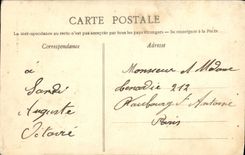 CARTE POSTALE
La correspondance au recto n'est pas acceptée par tous les pays étrangers — Se renseigner à la Poste
Correspondance
Adresse
à
Monsieur et Madame
212
Auguste
Faubourg St Antoine
Paris